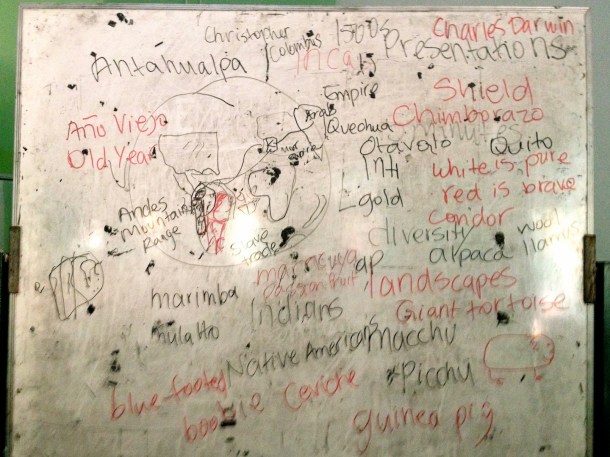 Christopher Columbus
1500s
Charles Darwin
Presentations
Antahualpa
Inca
Empire
Shield
Arab
Chimborazo
Año Viejo
Old Year
Quechua
minutes
Otavalo
Quito
Inti
white is pure
gold
red is brave
Condor
Andes
Mountain
Range
slave
trade
diversity
alpaca
wool
llamas
maracuya
passion fruit
landscapes
marimba
Indians
Giant tortoise
mulatto
Native Americans
macchu
Picchu
blue footed
boobie
Ceviche
guinea pig